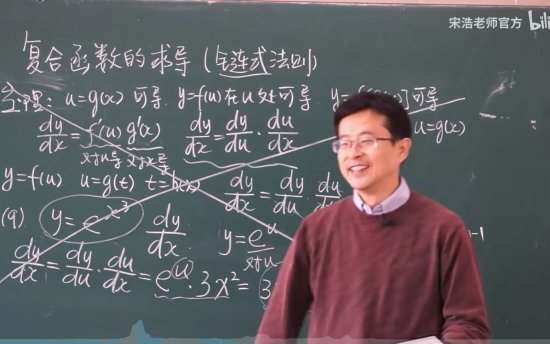 宋浩老师官方 bili
复合函数的求导(链式法则)
定理: u=g(x) 可导 y=f(u)在u处可导 y=f[ ]可导
dy/dx = f'(u) g'(x) dy/dx = dy/du · du/dx u=g(x)
对u导 对x导
y=f(u) u=g(t) t=h(x) dy/dx = dy/du ·
(9) y=e^{x^3} dy/dx y=e^u
对u
dy/dx = dy/du · du/dx = e^u · 3x^2 = 3